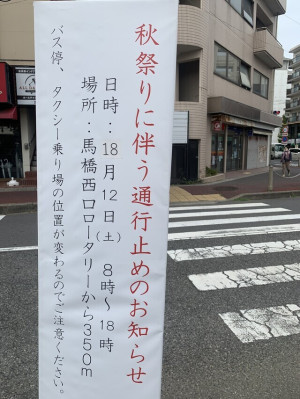 秋祭りに伴う通行止めのお知らせ
日時：18月12日(土) 8時～18時
場所：馬橋西口ロータリーから350m
バス停、タクシー乗り場の位置が変わるのでご注意ください。